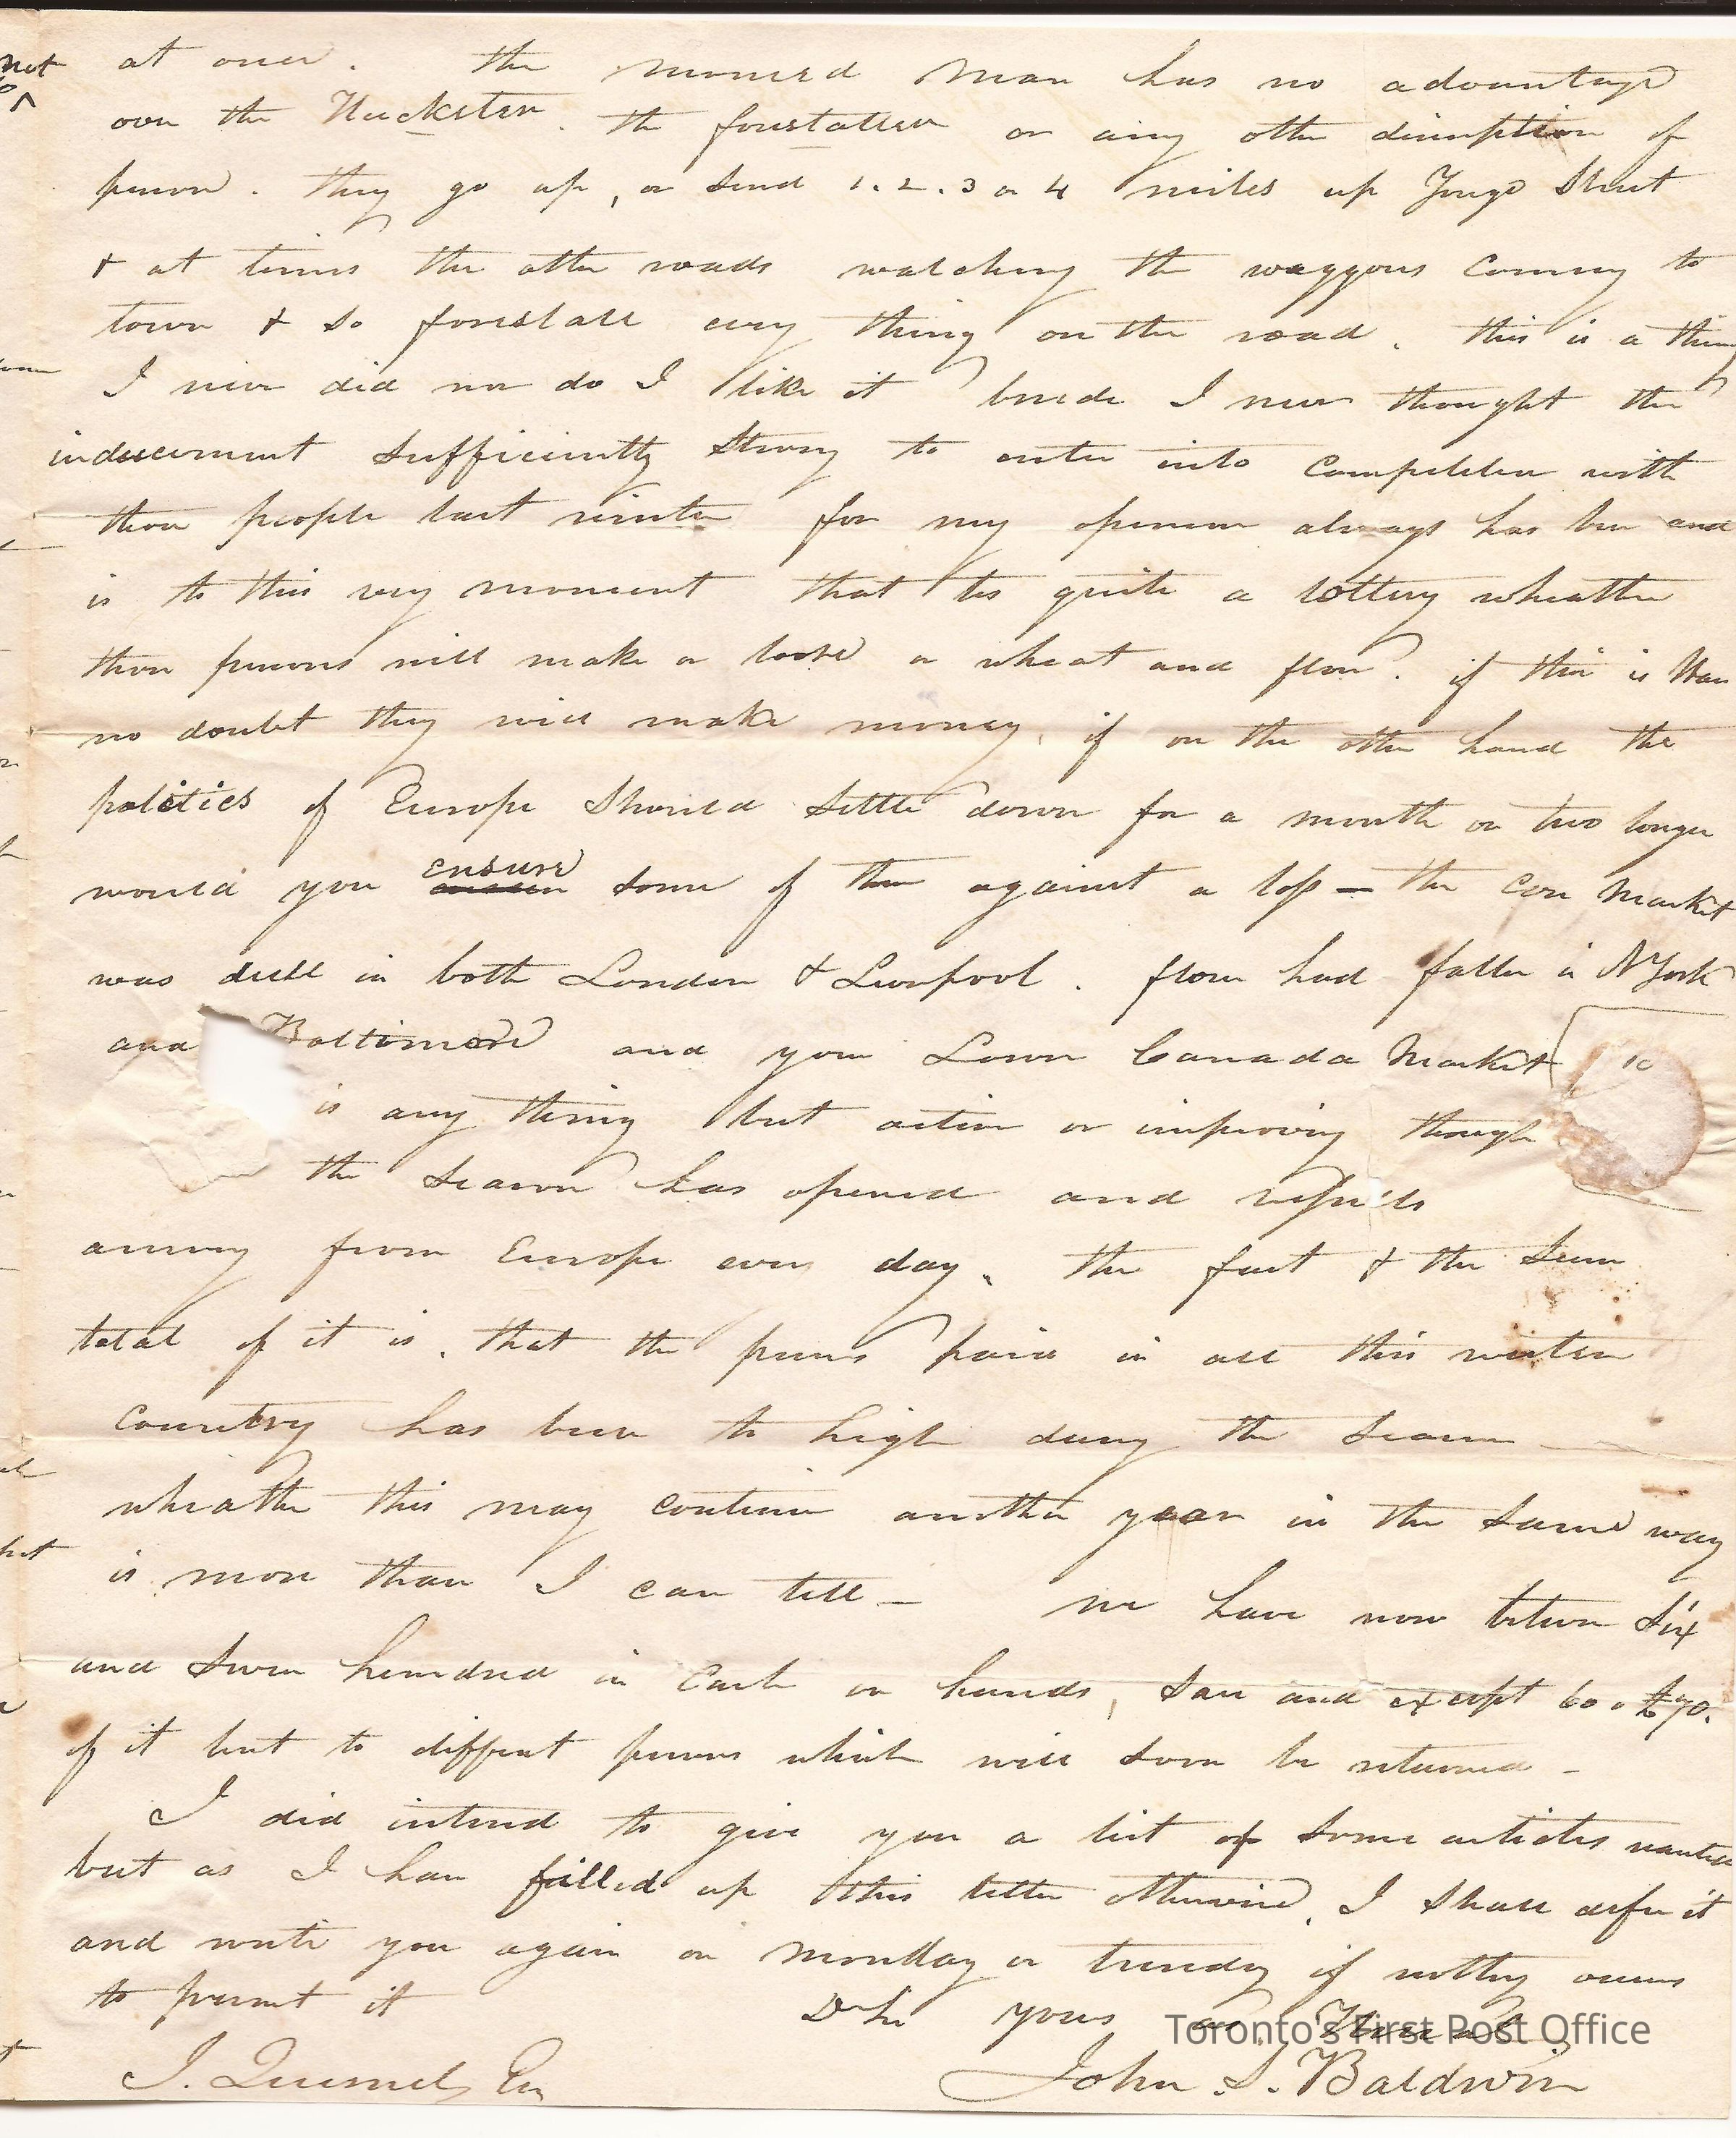 not at once. the monied man has no advantage
over the Huckster. the forestaller or any other discription of
person. they go up, or send 1.2.3 or 4 miles up Yonge Street
& at times the other roads watching the waggons coming to
town & so forestall every thing on the road. this is a thing
I never did nor do I like it beside I never thought the
inducement sufficiently strong to enter into competition with
those people last winter for my opinion always has been and
is to this very moment that tis quite a lottery wheather
those persons will make or loose on wheat and flour. if there is War
no doubt they will make money, if on the other hand the
politics of Europe should settle down for a month or two longer
would you ensure some of them against a loss — the corn market
was dull in both London & Liverpool. flour had fallen in N York
and Baltimore and your Lower Canada Market
is any thing but active or improving though
the season has opened and vessels
arriving from Europe every day. the fact & the sum
total of it is, that the prices paid in all this western
country has been to high during the season
wheather this may continue another year in the same way
is more than I can tell — we have now between six
and seven hundred in cash on hands, save and except 60 or £70.
of it lent to different persons which will soon be returned —
I did intend to give you a list of some articles wanted
but as I have filled up this letter otherwise, I shall defer it
and write you again on monday or tuesday if nothing occurs
to prevent it
Dr Sir yours as Usual
John S. Baldwin
J. Quesnel, Esq
Toronto's First Post Office